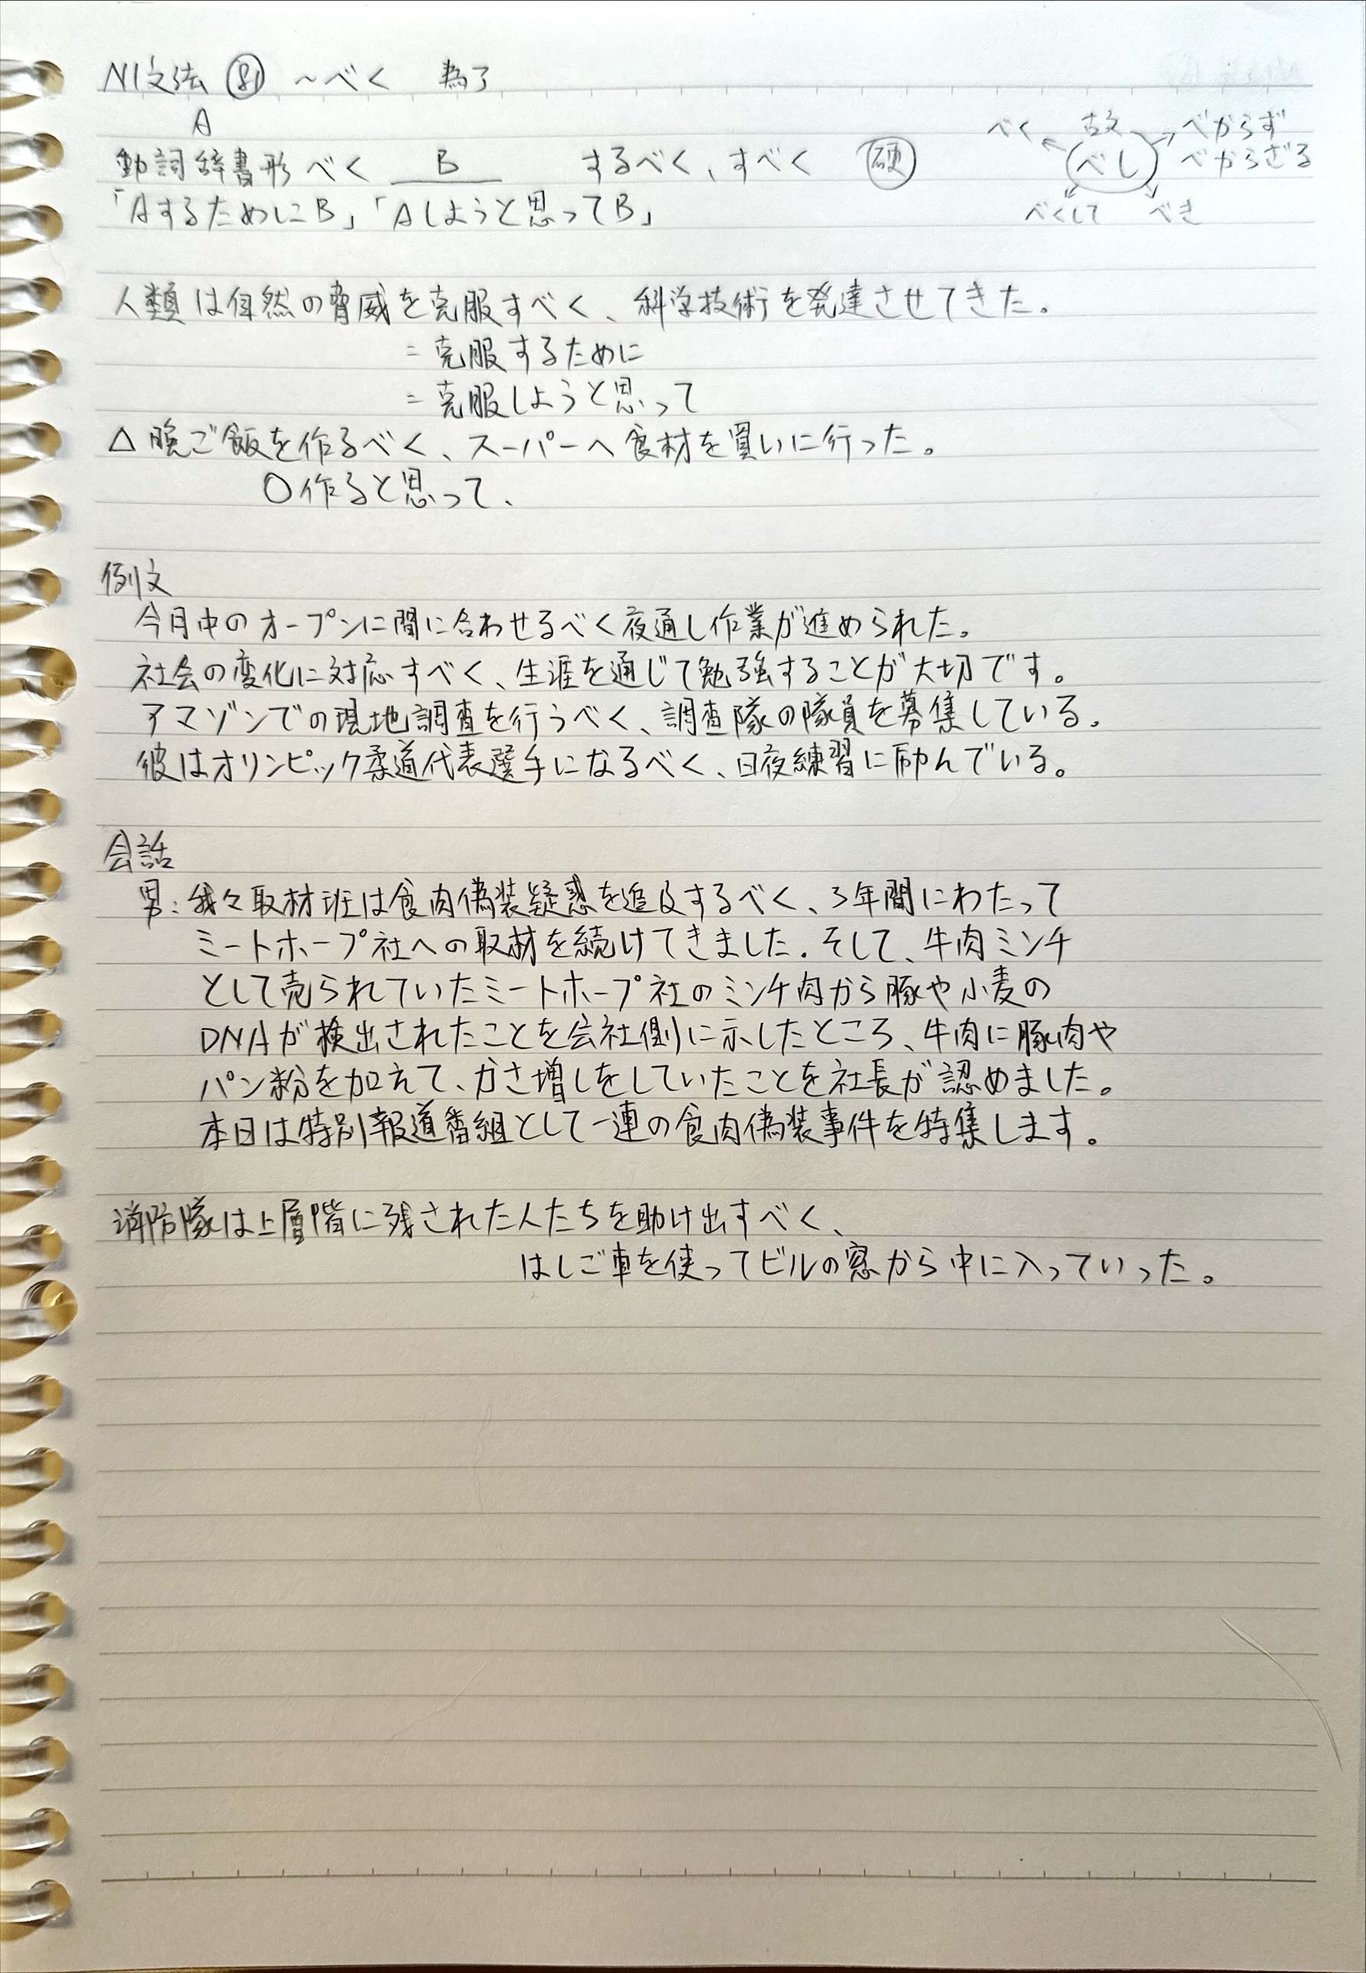 N1文法 81 ～べく 為了
A
動詞辞書形 べく B するべく、すべく 硬
「AするためにB」「Aしようと思ってB」
べく 古文 べからず
べし べからざる
べくして べき
人類は自然の脅威を克服すべく、科学技術を発達させてきた。
= 克服するために
= 克服しようと思って
△ 晩ご飯を作るべく、スーパーへ食材を買いに行った。
○作ると思って、
例文
今月中のオープンに間に合わせるべく夜通し作業が進められた。
社会の変化に対応すべく、生涯を通じて勉強することが大切です。
アマゾンでの現地調査を行うべく、調査隊の隊員を募集している。
彼はオリンピック柔道代表選手になるべく、日夜練習に励んでいる。
会話
男：我々取材班は食肉偽装疑惑を追及するべく、3年間にわたって
ミートホープ社への取材を続けてきました。そして、牛肉ミンチ
として売られていたミートホープ社のミンチ肉から豚や小麦の
DNAが検出されたことを会社側に示したところ、牛肉に豚肉や
パン粉を加えて、かさ増しをしていたことを社長が認めました。
本日は特別報道番組として一連の食肉偽装事件を特集します。
消防隊は上層階に残された人たちを助け出すべく、
はしご車を使ってビルの窓から中に入っていった。